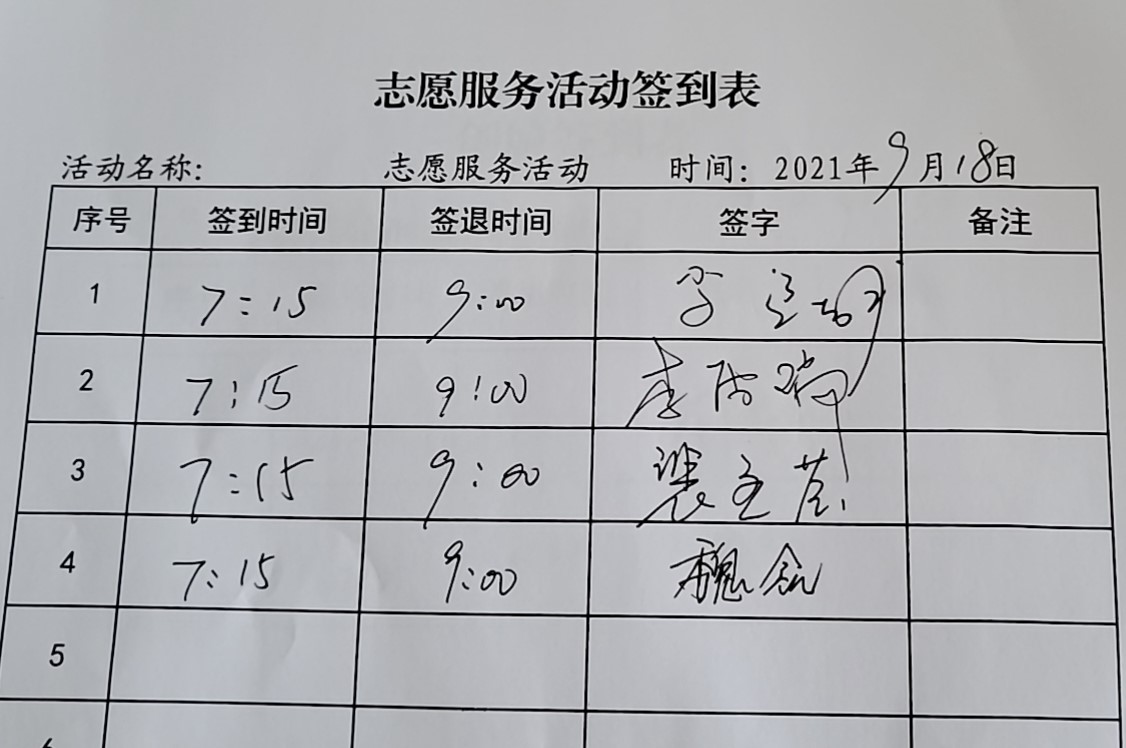 志愿服务活动签到表
活动名称: 志愿服务活动 时间: 2021年9月18日
序号 签到时间 签退时间 签字 备注
1 7:15 9:00
2 7:15 9:00 李
3 7:15 9:00 裴
4 7:15 9:00 魏
5